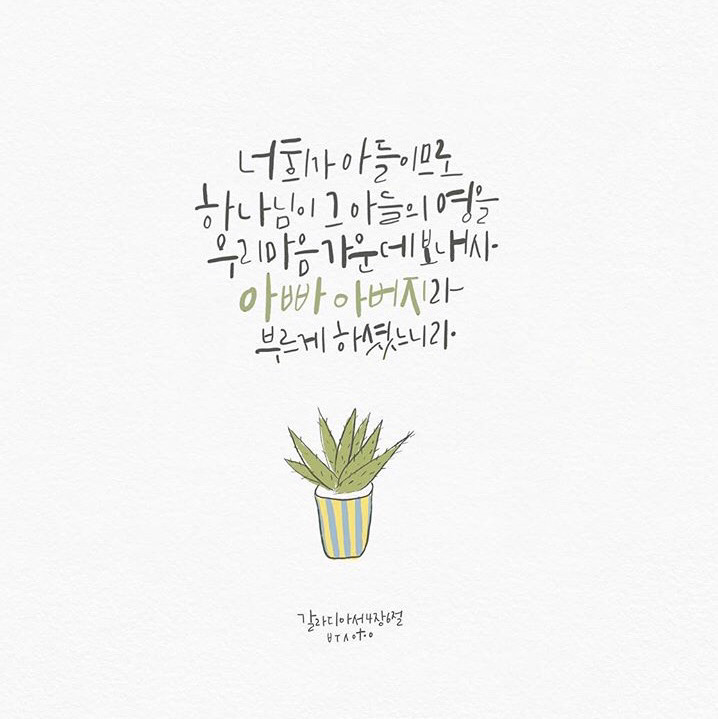 너희가 아들이므로
하나님이 그 아들의 영을
우리 마음 가운데 보내사
아빠 아버지라
부르게 하셨느니라.
갈라디아서 4장 6절